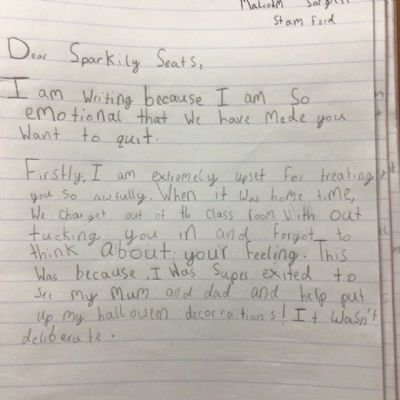 Malcolm Sarg
Stamford
Dear Sparkily Seats,
I am writing because I am so
emotional that we have mede you
want to quit.
Firstly, I am extremely upset for treating
you so awfully. When it was home time,
We charget out of the class room with out
tucking you in and forgot to
think about your feeling. This
was because, I was super exited to
see my Mum and dad and help put
up my halloween decorrations! It wasn't
deliberate.